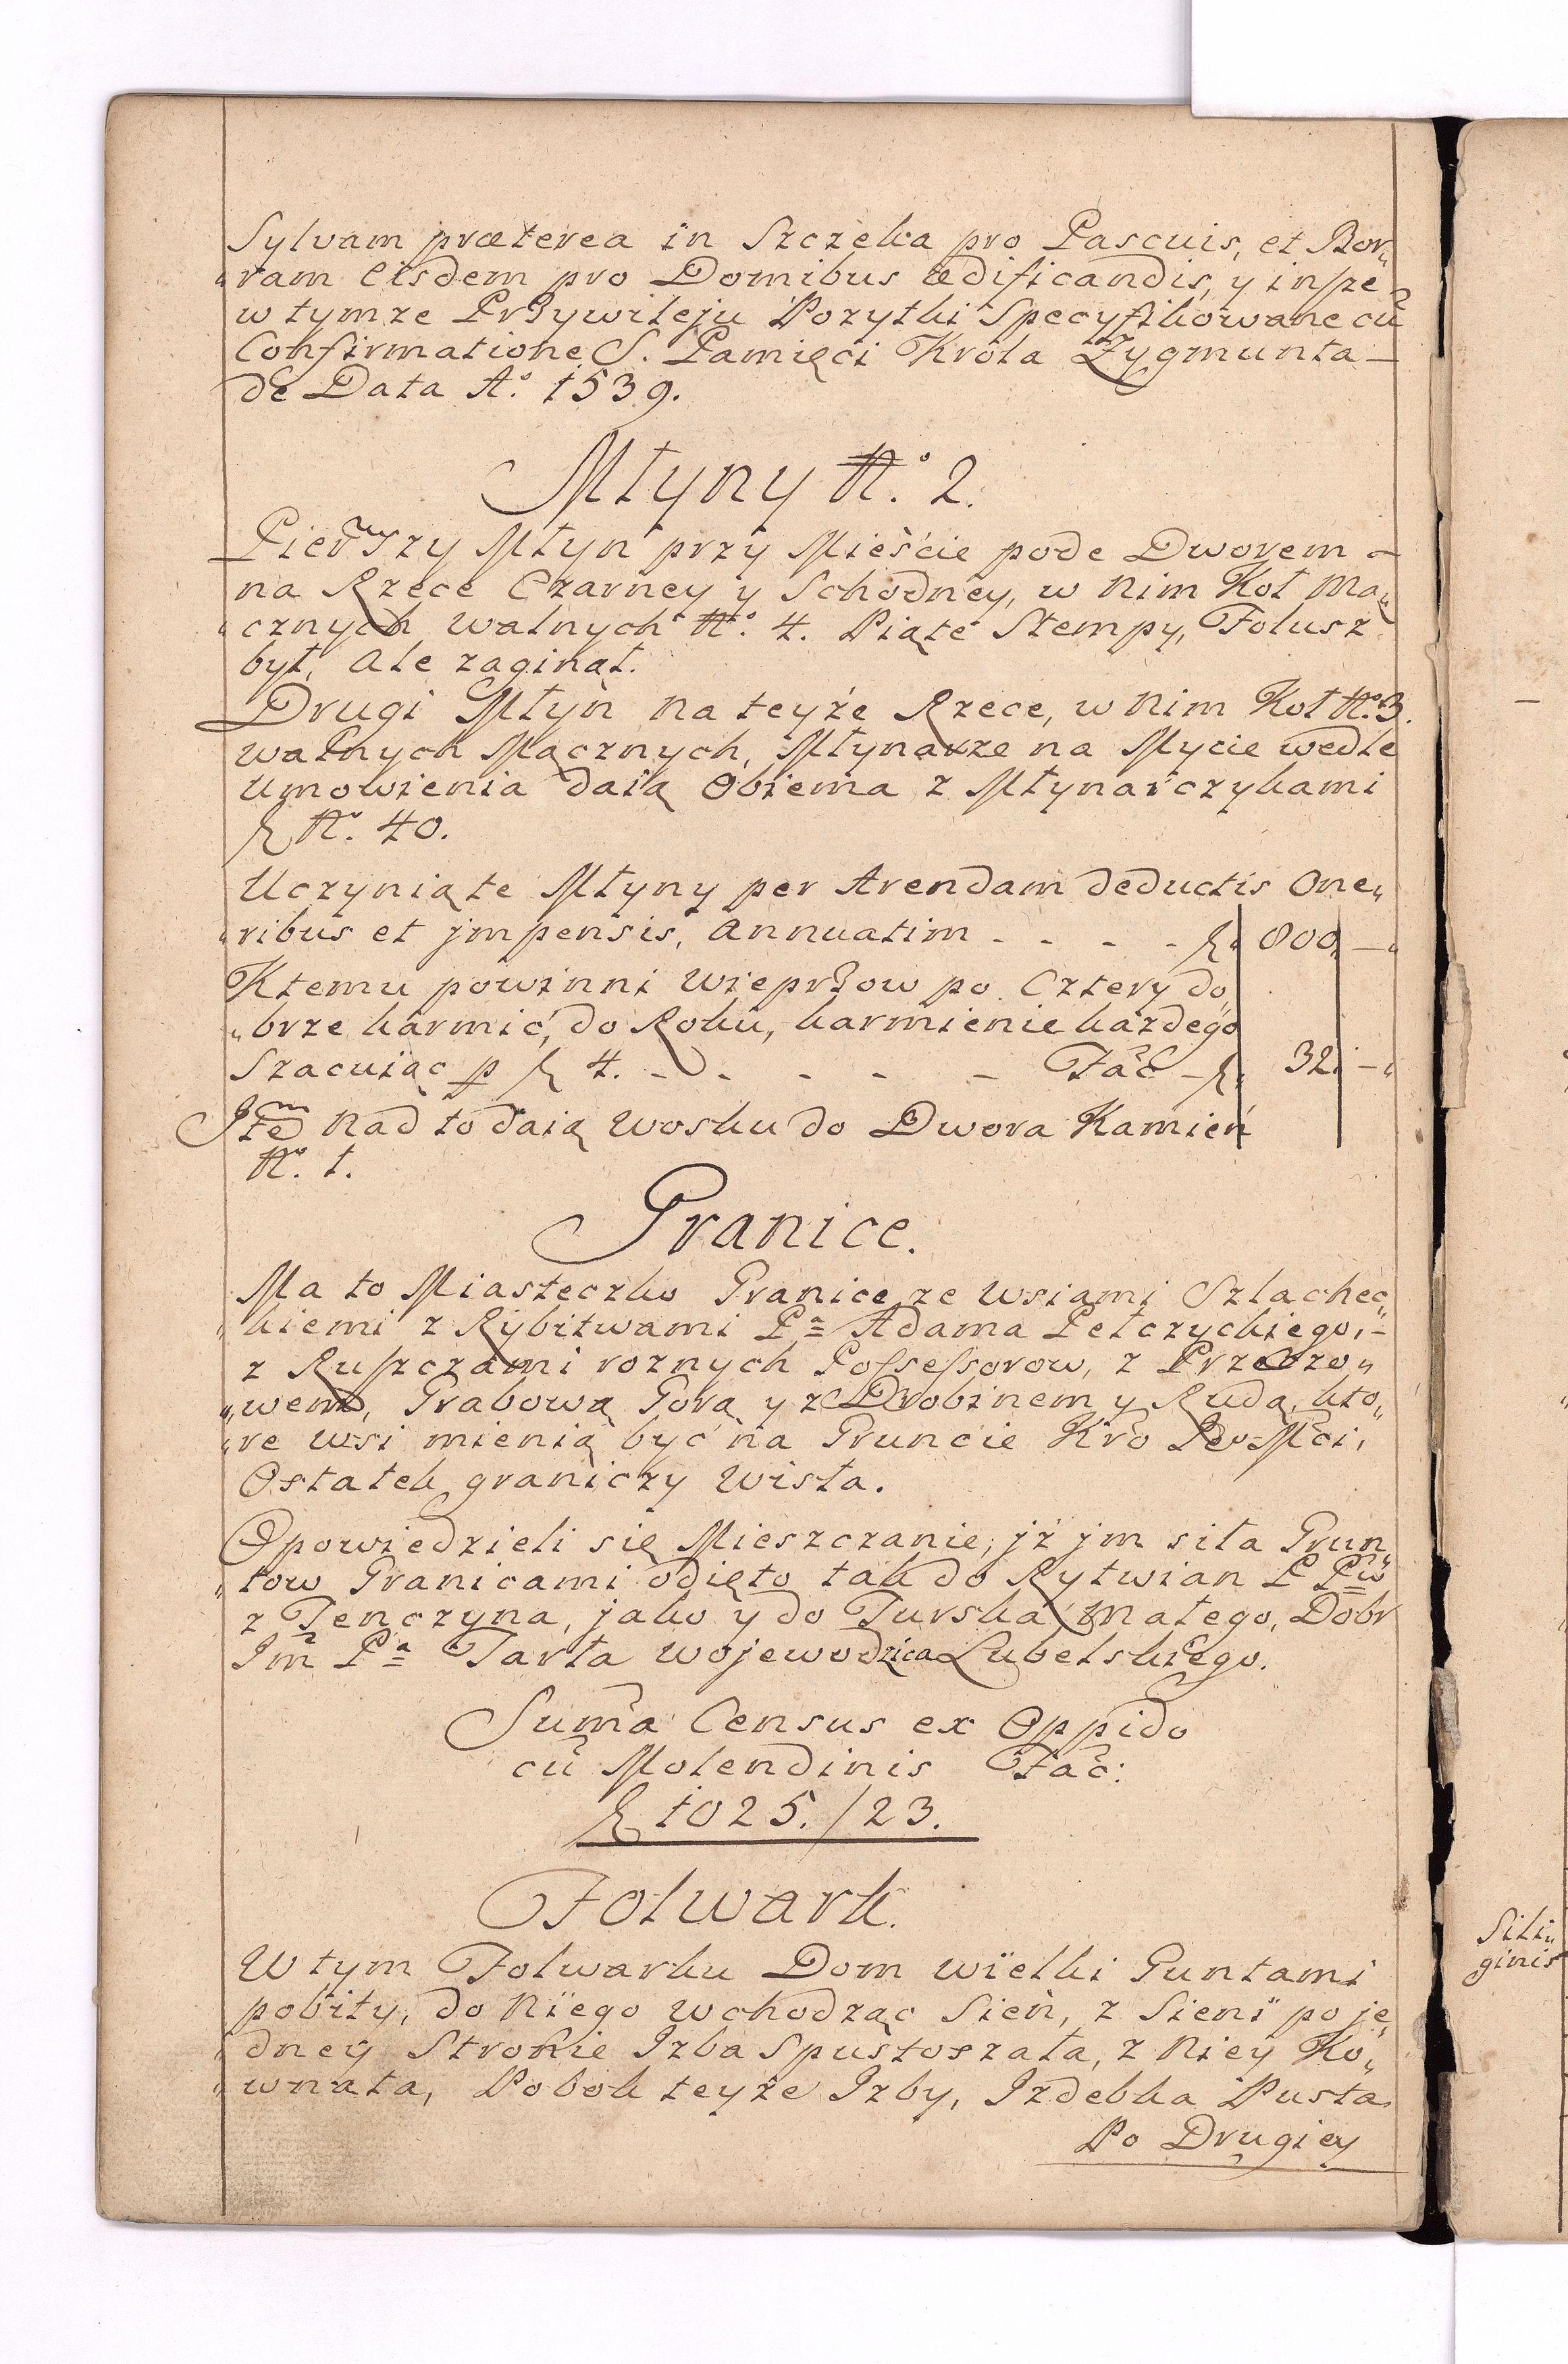 Sylvam præterea in Szczeka pro Pascuis, et Bor„
„ram Eisdem pro Domibus ædificandis, y insze
w tymze Przywileju Pozytki Specyfikowane cu̅
Confirmatione S. Pamięci Krola Zygmunta –
de Data Aº. 1539.
Młyny Nº. 2.
Pierwszy Młyn przy Mieście pode Dworem –
na Rzece Czarney y Schodney, w nim Koł Mą„
„cznych walnych Nº. 4. Piąte Stempy, Folusz
był, ale zaginął.
Drugi Młyn na teyże Rzece, w nim Koł Nº. 3.
walnych Mącznych, Młynarze na Mycie wedle
Umowienia daią Obiema z Młynarczykami
f Nº. 40.
Uczynią te Młyny per Arendam deductis One„
„ribus et jmpensis, annuatim - - - - f„ 800„ –„
Ktemu powinni wieprzow po Cztery do„
„brze karmić, do Roku, karmienie każdego
Szacuiąc p f 4. - - - - - Fac̅ – f„ 32„ –„
Itẽm nad to daią Wosku do Dwora Kamień
Nº. 1.
Granice.
Ma to Miasteczko Granice ze wsiami Szlachec„
„kiemi z Rybitwami Pª Adama Pełczyckiego, –
z Ruszczami roznych Possessorow, z Przeczo„
„wem, Grabową Gorą y z Drobinem y Rudą, kto„
„re wsi mienią być na Gruncie Kro Jeo Mci,
Ostatek graniczy Wisła.
Opowiedzieli się Mieszczanie, jż jm siła Grun„
„tow Granicami odięto tak do Rytwian P Pw̅
z Tenczyna, jako y do Turska Małego, Dobr
Jm̅ Pª Tarła Wojewodzica Lubelskiego.
Sum̅a Census ex Oppido
cu̅ Molendinis Fac̅:
f 1025. / 23.
Folwark.
W tym Folwarku Dom wielki Guntami
pobity, do niego wchodząc Sień, z Sieni po je„
„dney Stronie Izba Spustoszała, z niey Ko„
„wnata, Pobok teyże Izby, Izdebka Pusta
Po Drugiey
Sili„
ginis